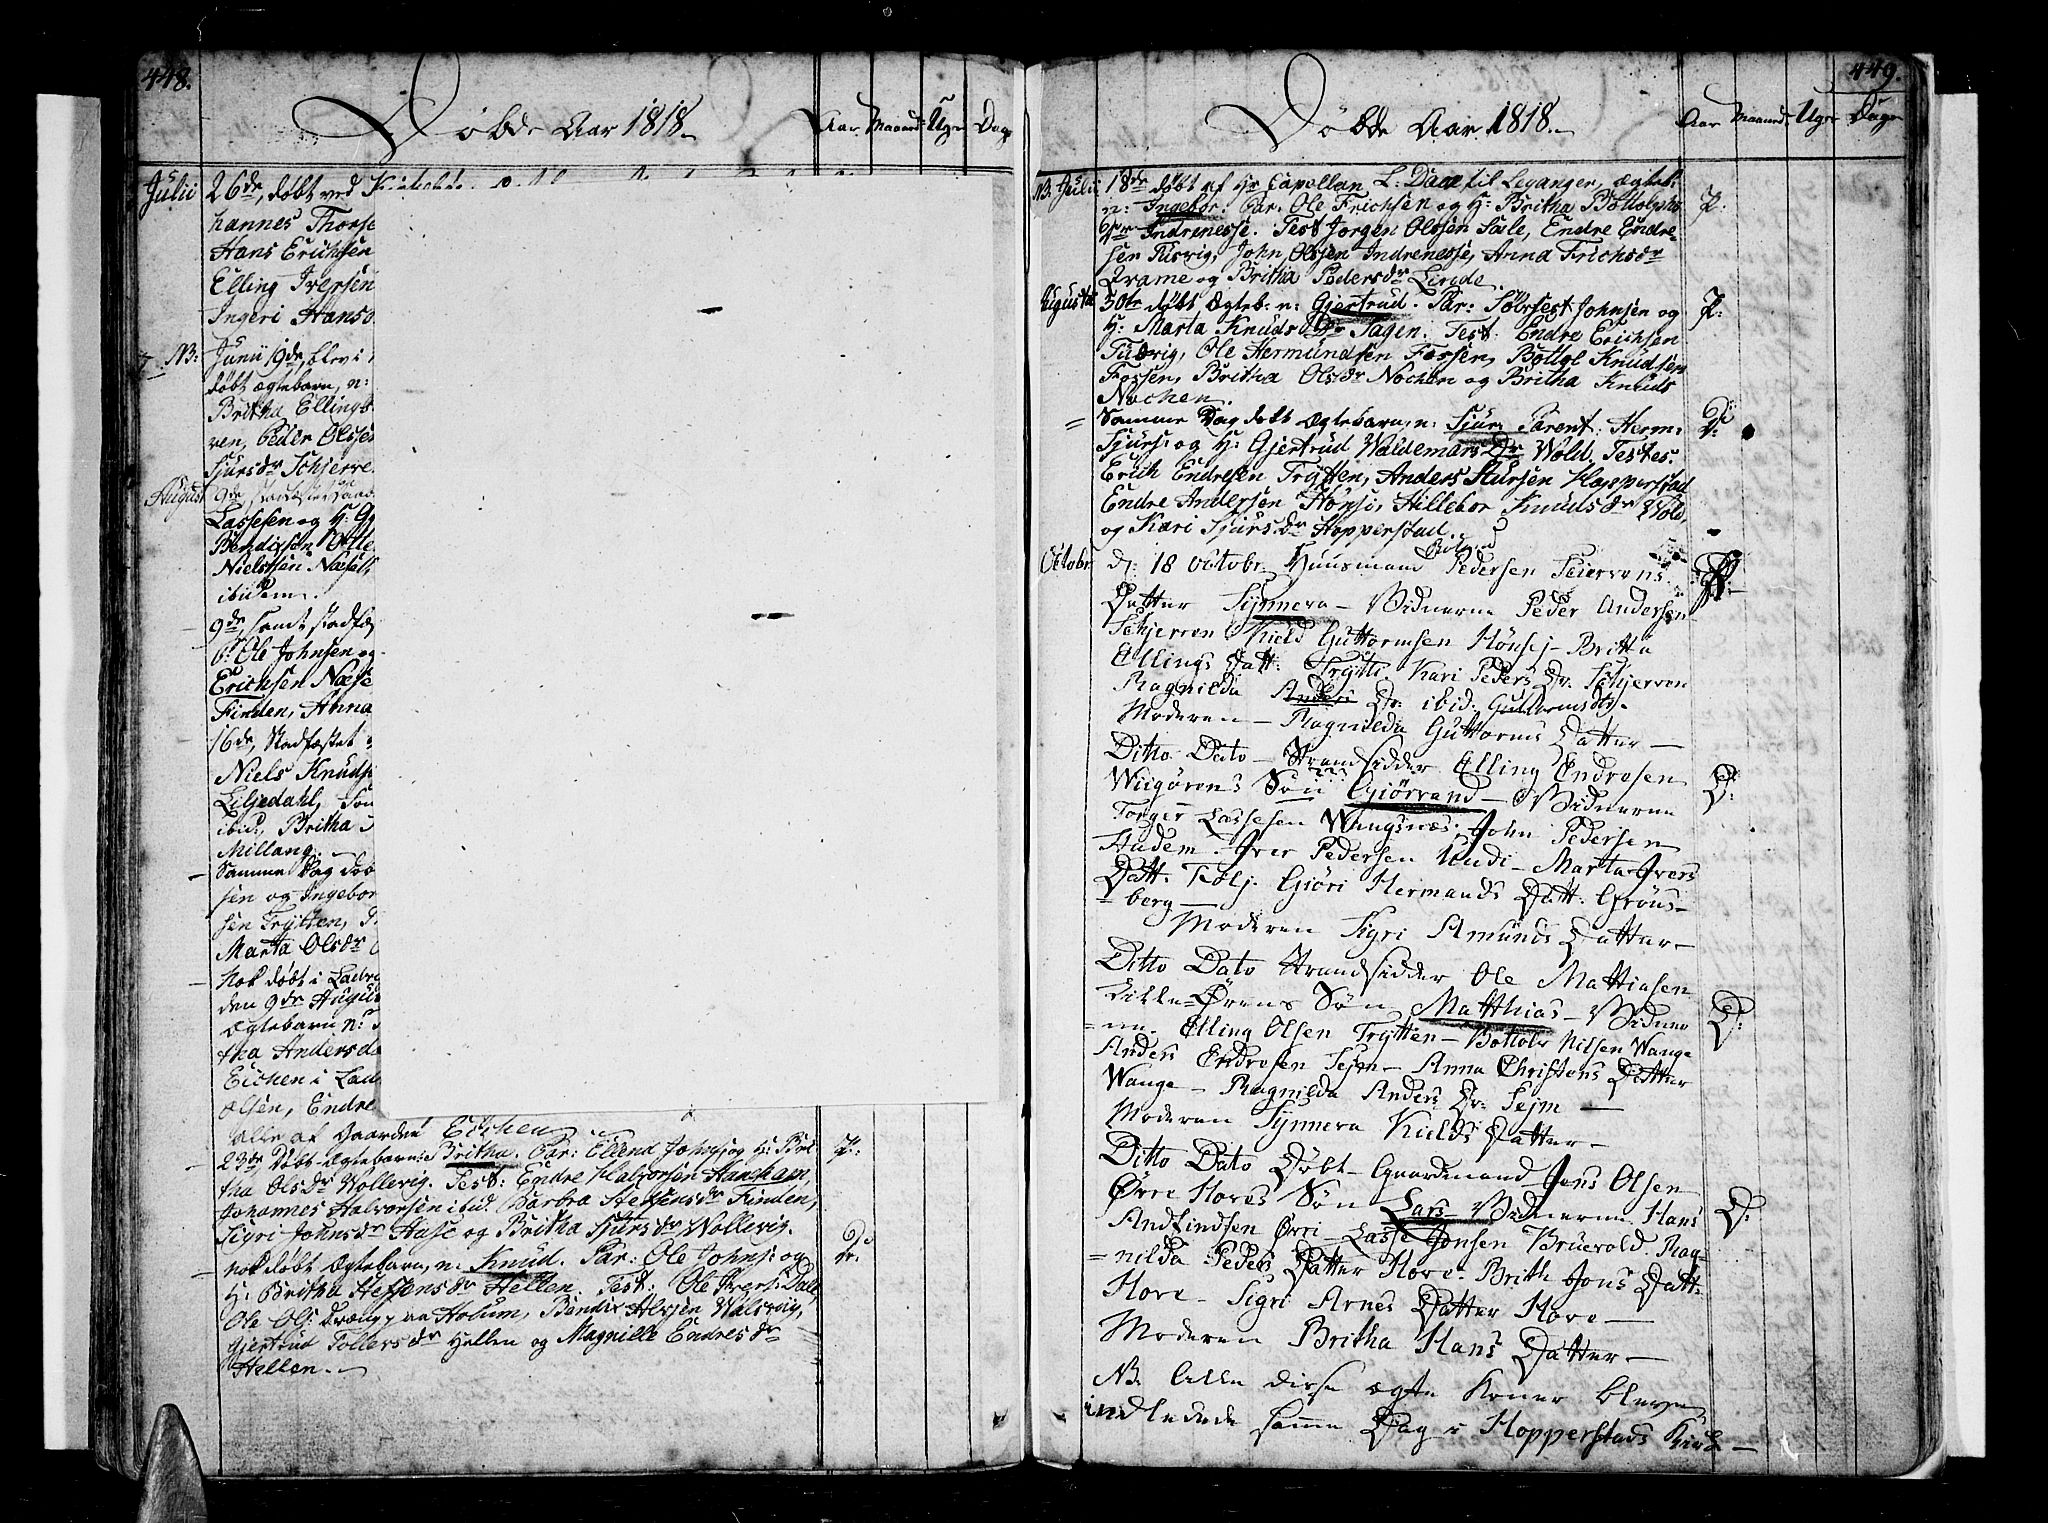 448.
Döbde Aar 1818.
Aar Maaned: Uger Dage
Julii 26de, döbt ved
hannes Thors
Hans Erichsen
Elling Iversen
Ingeri Hansd
NB: Junii 19de, blev i
döbt ægtebarn, n:
Britha Ellings
ren, Peder Olsse
Sjursdr Schjerre
August 9de,
Lassesen og H:
Bendixsen
Nielssen Næse
ibidem.
9de, samt stadfæ
P: Ole Johnsen og
Erichsen Næse
Finden, Anna
16de, Stadfæstet
Niels Knuds
Liljedahl,
ibid, Britha
Millang.
Samme Dag döb
sen og Ingebor
sen Trytten,
Marta Olsdr
Nok döbt i Ladv
den 9de August
Ægtebarn n:
tha Andersd
Eichen i Lad
Olsen, Endre
alle af Gaarden Eichen
23de Döbt Ægtebarn: Britha. Par: Ellend Johns: og H: Brit
tha Olsdr Wollevig. Test: Endre Halvorsen Hancham,
Johannes Halvorsen ibid. Barbra Steffensdr Finden,
Sigri Johnsdr Aase og Britha Sjursdr Wollevig.
Nok döbt Ægtebarn, n: Knud. Par: Ole Johns: og
H: Britha Steffensdr Hellen. Test: Ole Ivers: Dale,
Ole Ols: Dreng paa Holum, Bendix Alvsen Walsvig,
Gjertrud Tollersdr Hellen og Magnille Endresdr
Hellen.
449.
Döbde Aar 1818.
Aar Maaned: Uger Dage
NB: Julii 18de döbt af Hr Capellan, L: Daae til Leganger, Ægteb:
n: Ingebor. Par. Ole Erichsen og H: Britha Bottolphs
Dr Indrenesse. Test Jorgen Olssen Sæle, Endre Endre-
sen Tusvig, John Olssen Indrenesse, Anna Erichsdr
Qvame og Britha Pedersdr Linde.
Augusti 30te döbt Ægteb: n: Gjertrud. Par: Sölfest Johnsen og
H: Marta Knuds Dr Tagen. Test: Endre Erichsen
Tusvig, Ole Hermundsen Fossen, Bottol Knudsen
Fossen, Britha Olsdr Nochen og Britha Knuds
Nochen.
= Samme Dag döbt Ægtebarn, n: Sjur. Parent: Herm:
Sjurs: og H: Gjertrud Waldemars Dr Wold. Testes:
Erich Endresen Trytten, Anders Sjursen Hopperstad
Endre Andersen Hönsi, Hillebor Knudsdr Wold,
og Kari Sjursdr Hopperstad.
Octobr d: 18 Octobr. Huusmand Pedersen
Datter Synneva – Vidnerne Peder Andersen
Schjerven Kield Guttormsen Hönsj – Britta
Ellings Datt. Trytti. Kari Peders Dr. Schjerven
Ragnilda Anders Dr. ibid. Guttormsdtr.
Moderen – Ragnilda Guttorms Datter –
Ditto Dato – Strandsidder Elling Endresen
Wiigörens Sön Giörvand – Vidnerne
Torger Lassesen Wangsnæs, John Pedersen
Iver Pedersen Undi – Marta Ivers
Datt. Giöri Hermands Datt. Gröns-
berg –
Moderen Sigri Amunds Datter –
Ditto Dato Strandsidder Ole Mathiasen
Lille-Örens Sön Matthias – Vidner-
ne. Elling Olsen Trytten – Bottolv Nilsen Wange
Anders Endresen Sejm – Anna Christens Datter
Wange – Ragnilda Anders Dr. Sejm –
Moderen Synneva Kields Datter –
Ditto Dato Döbt – Gaardmand Jens Olsen
Övre Hoves Sön Lars – Vidnerne Hans
Andfindsen Övri – Lasse Jonsen Bruevold. Rag-
nilda Peders Datter Hove – Brith Jons Datt:
Hove – Sigri Arnes Datter Hove –
Moderen Britha Hans Datter –
NB: Alle disse ægte Koner bleve
indledede samme Dag i Hopperstads Kirke –